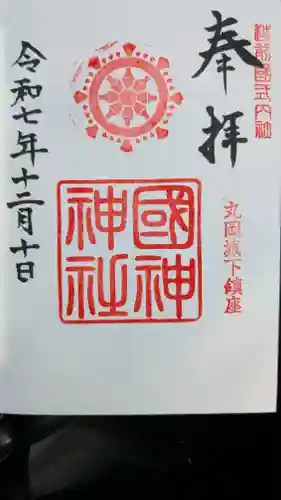 越前國式内社
奉拝
丸岡城下鎮座
國神
神社
令和七年十二月十日